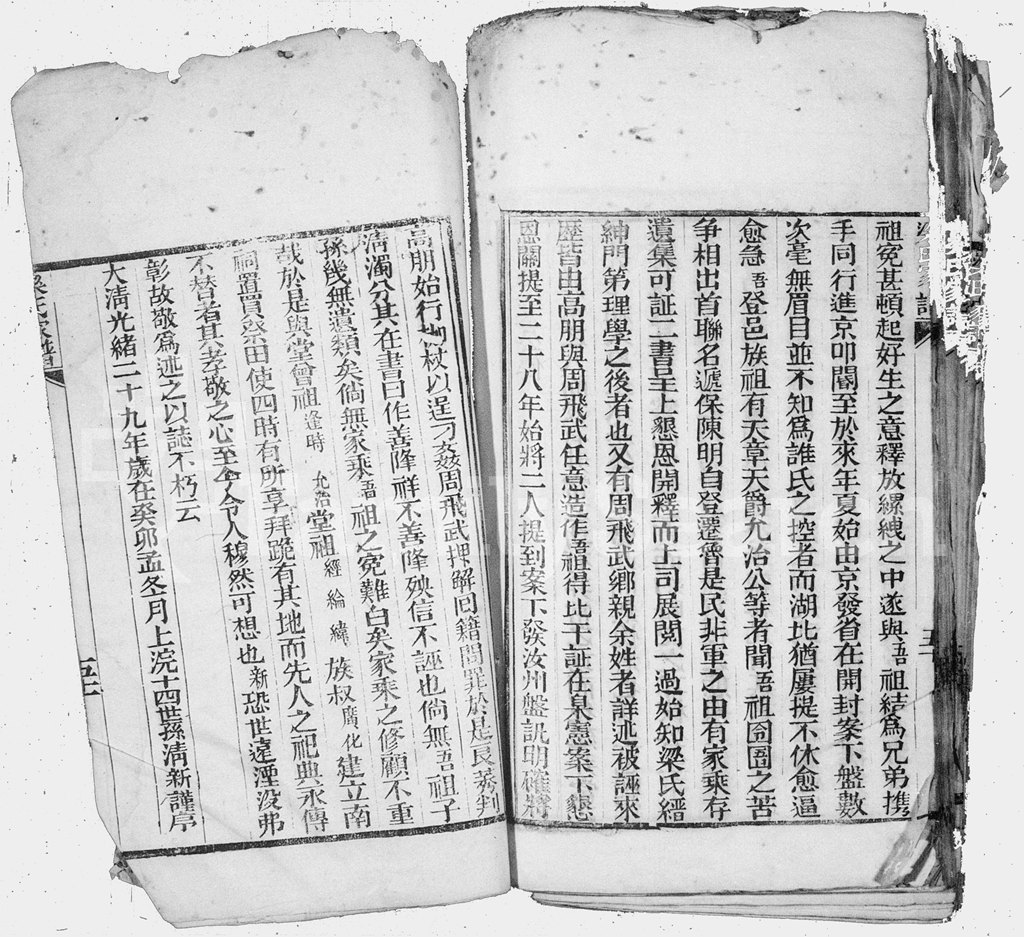 祖冤甚頓起好生之意釋放縲絏之中遂與吾祖結爲兄弟携
手同行進京叩闇至於來年夏始由京發省在開封案下盤數
次毫無眉目並不知爲誰氏之控者而湖北猶屢提不休愈逼
愈急吾登邑族祖有天章天爵允治公等者聞吾祖囹圄之苦
争相出首聯名遞保陳明自登遷魯是民非軍之由有家乘存
遺集可証二書呈上懇恩開釋而上司展閱一過始知梁氏縉
紳門第理學之後者也又有周飛武鄉親余姓者詳述被誣來
歷皆由高朋與周飛武任意造作吾祖得比干証在臬憲案下懇
恩關提至二十八年始將二人提到案下發汝州盤訊明確將
高朋始行 杖以逞刁姦周飛武押解回籍問 於是良莠判
淸濁分其在書曰作善降祥不善降殃信不誣也倘無吾祖子
孫幾無遺類矣倘無家乘吾祖之冤難白矣家乘之修顧不重
哉於是與堂曾祖逢時 允浩堂祖經綸緯族叔廣化建立南
祠置買祭田使四時有所享拜跪有其地而先人之祀典永傳
不替者其孝敬之心至今令人穆然可想也新恐世遠湮没弗
彰故敬爲述之以誌不朽云
大淸光緒二十九年歲在癸卯孟冬月上浣十四世孫淸新謹序
梁氏家譜